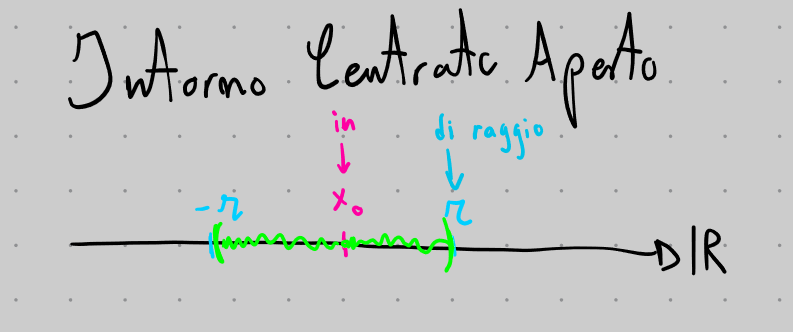 Intorno Centrato Aperto
in
di raggio
-r
x₀
r
ℝ